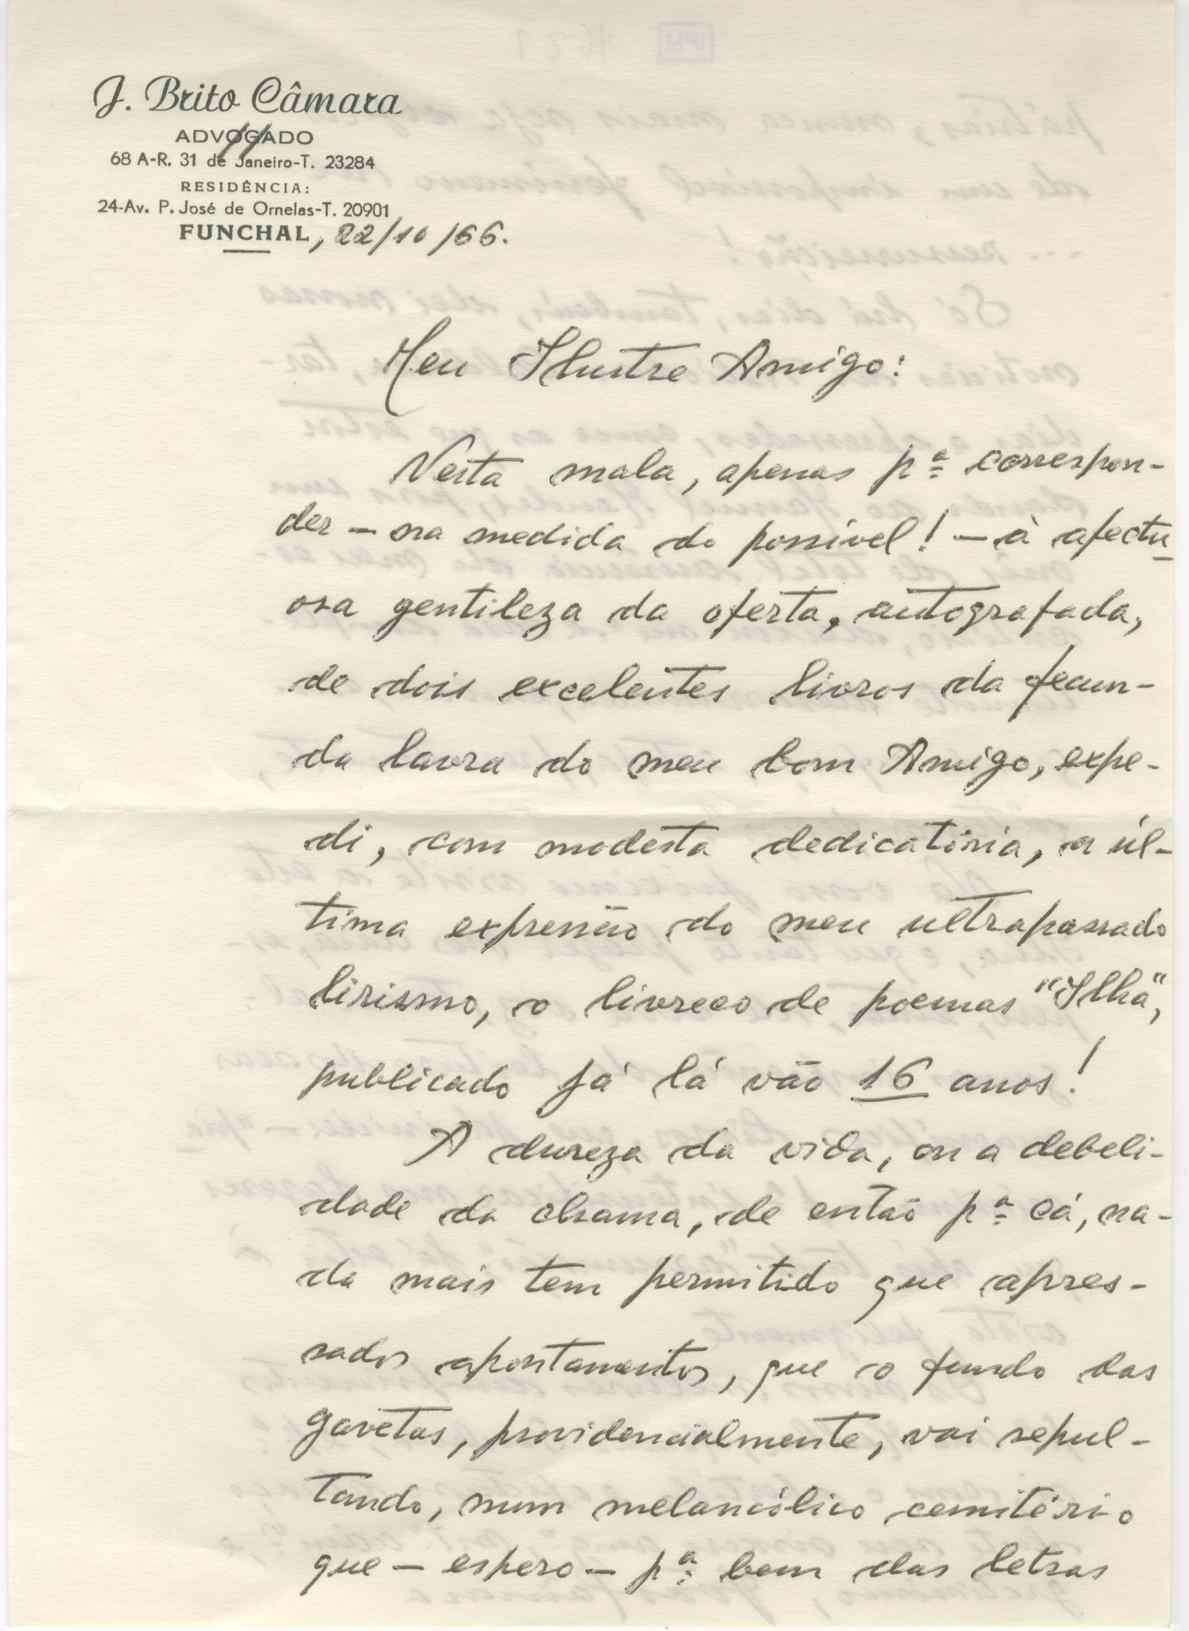 J. Brito Câmara
ADVOGADO
68 A-R. 31 de Janeiro-T. 23284
RESIDÊNCIA:
24-Av. P. José de Ornelas-T. 20901
FUNCHAL, 22/10/66.
Meu Ilustre Amigo:
Nesta mala, apenas pª correspon-
der - na medida do possível! - à afectu-
osa gentileza da oferta, autografada,
de dois excelentes livros da fecun-
da lavra do meu bom Amigo, expe-
di, com modesta dedicatória, a úl-
tima expressão do meu ultrapassado
lirismo, o livreco de poemas "Ilha",
publicado já lá vão 16 anos!
A dureza da vida, ou a debeli-
dade da chama, de então pª cá, na-
da mais tem permitido que apres-
sados apontamentos, que o fundo das
gavetas, providencialmente, vai sepul-
tando, num melancólico cemitério
que - espero - pª bem das letras